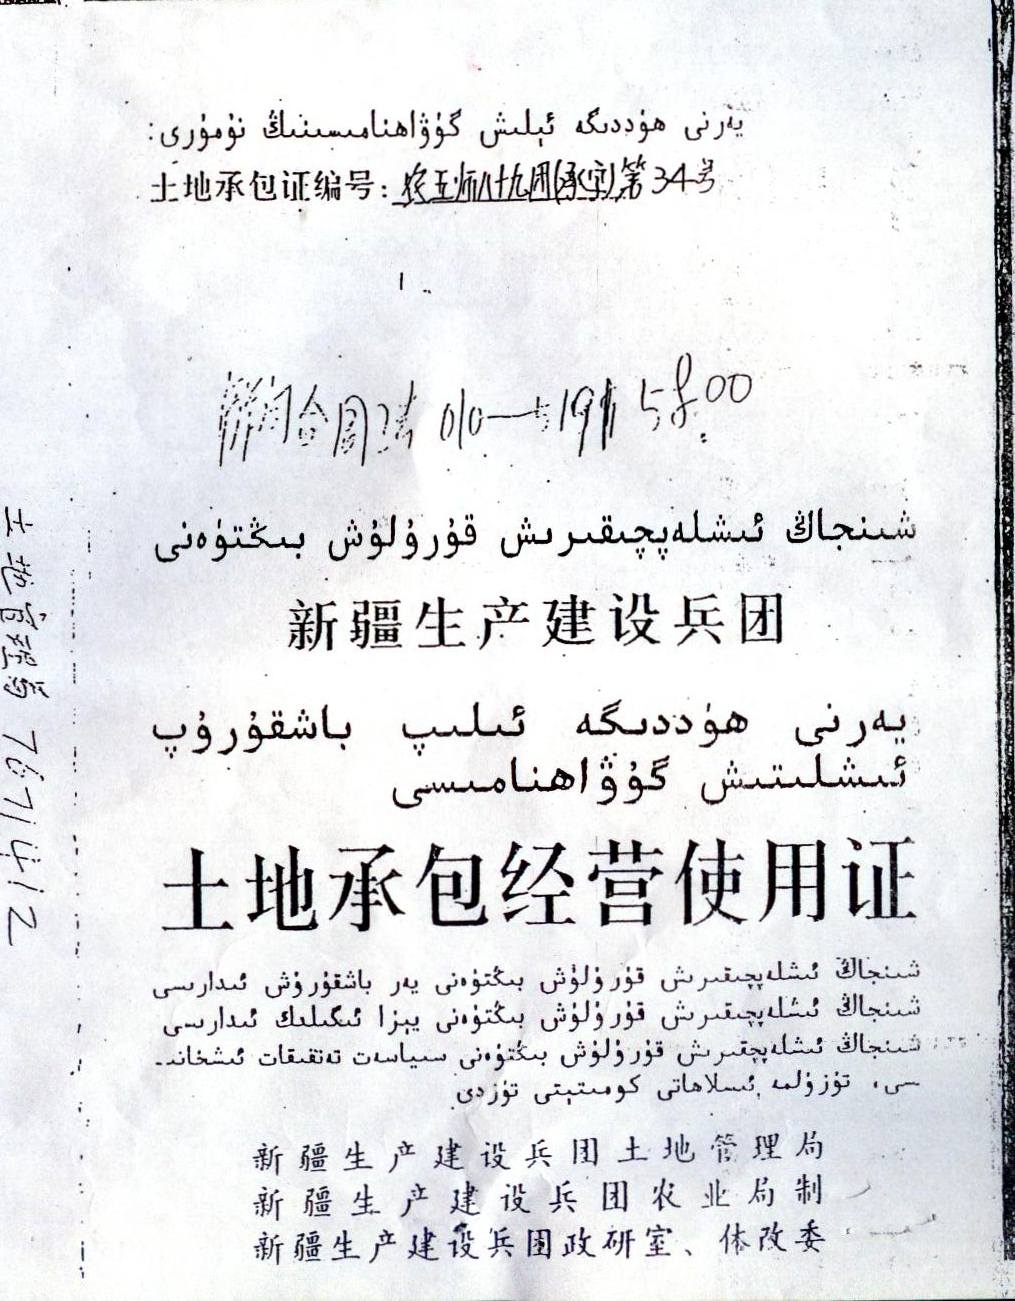 يەرنى ھۆددىگە ئېلىش گۇۋاھنامىسىنىڭ نۇمۇرى:
土地承包证编号：农五师八十九团(承字)第34号
合同法 010— 58.00
شىنجاڭ ئىشلەپچىقىرىش قۇرۇلۇش بىڭتۈەنى
新疆生产建设兵团
يەرنى ھۆددىگە ئىلىپ باشقۇرۇپ
ئىشلىتىش گۇۋاھنامىسى
土地承包经营使用证
شىنجاڭ ئىشلەپچىقىرىش قۇرۇلۇش بىڭتۈەنى يەر باشقۇرۇش ئىدارىسى
شىنجاڭ ئىشلەپچىقىرىش قۇرۇلۇش بىڭتۈەنى يېزا ئىگىلىك ئىدارىسى
شىنجاڭ ئىشلەپچىقىرىش قۇرۇلۇش بىڭتۈەنى سىياسەت تەتقىقات ئىشخانى-
سى، تۈزۈلمە ئىسلاھاتى كومىتېتى تۈزدى
新疆生产建设兵团土地管理局
新疆生产建设兵团农业局制
新疆生产建设兵团政研室、体改委
土地管理局 7671412